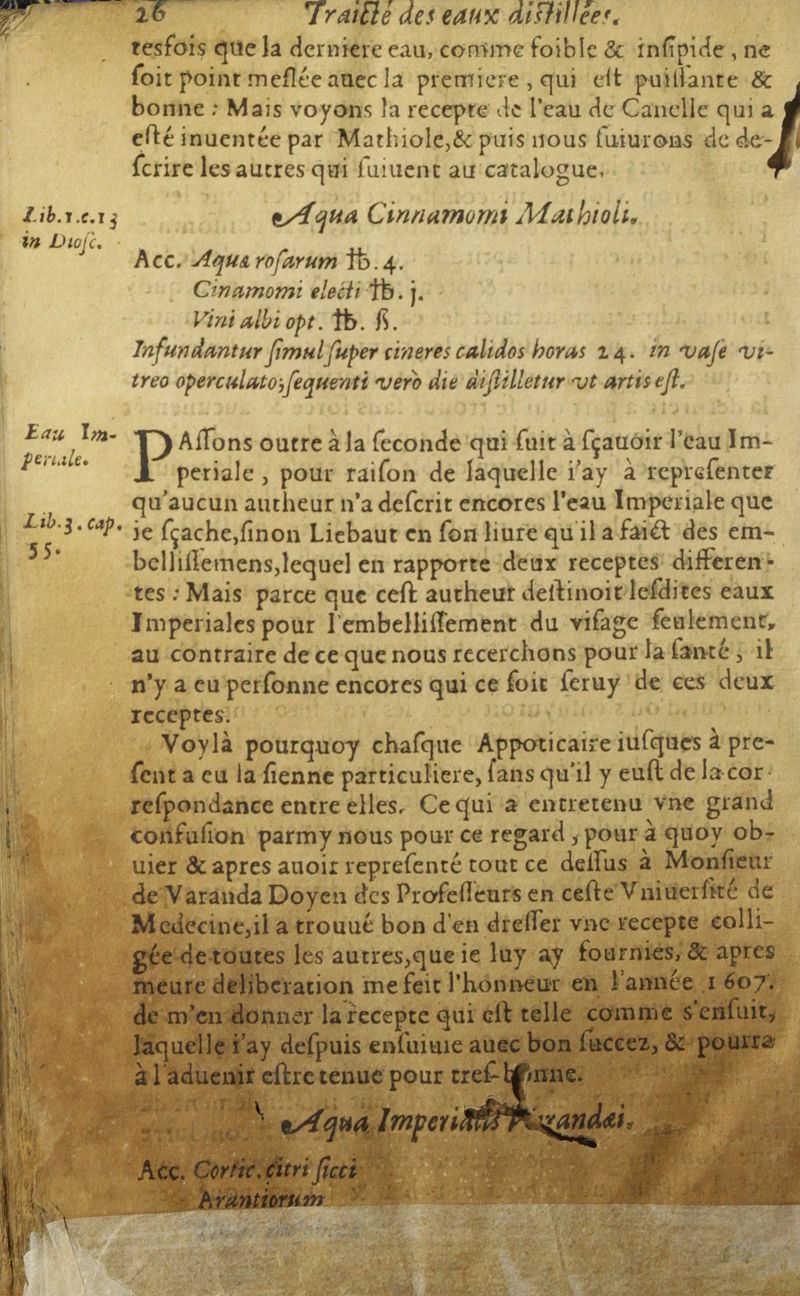 26 Traicté des eaux distillées.
tesfois que la derniere eau, comme foible & insipide, ne
soit point meslée auec la premiere, qui est puissante &
bonne : Mais voyons la recepte de l'eau de Canelle qui a
esté inuentée par Mathiole,& puis nous suiurons de de-
scrire les autres qui suiuent au catalogue.
Lib.1.c.13
in Diosc.
Aqua Cinnamomi Mathioli.
Acc. Aquæ rosarum ℔.4.
Cinamomi electi ℔.j.
Vini albi opt. ℔. ß.
Infundantur simul super cineres calidos horas 24. in vase vi-
treo operculato; sequenti vero die distilletur vt artis est.
Eau Im-
periale.
PAssons outre à la seconde qui suit à sçauoir l'eau Im-
periale, pour raison de laquelle i'ay à representer
qu'aucun autheur n'a descrit encores l'eau Imperiale que
Lib.3.cap.
55.
ie sçache,sinon Liebaut en son liure qu'il a faict des em-
bellissemens,lequel en rapporte deux receptes differen-
tes : Mais parce que cest autheur destinoit lesdites eaux
Imperiales pour l'embellissement du visage seulement,
au contraire de ce que nous recerchons pour la santé, il
n'y a eu personne encores qui ce soit seruy de ces deux
receptes.
Voylà pourquoy chasque Appoticaire iusques à pre-
sent a eu la sienne particuliere, sans qu'il y eust de la cor-
respondance entre elles. Ce qui a entretenu vne grand
confusion parmy nous pour ce regard, pour à quoy ob-
uier & apres auoir representé tout ce dessus à Monsieur
de Varanda Doyen des Professeurs en ceste Vniuersité de
Medecine,il a trouué bon d'en dresser vne recepte colli-
gée de toutes les autres,que ie luy ay fournies, & apres
meure deliberation me feit l'honneur en l'année 1607.
de m'en donner la recepte qui est telle comme s'ensuit,
laquelle i'ay despuis ensuiuie auec bon succez, & pourra
à l'aduenir estre tenue pour tres-bonne.
Aqua Imperialis Varandæi.
Acc. Cortic. citri sicci
Arantiorum